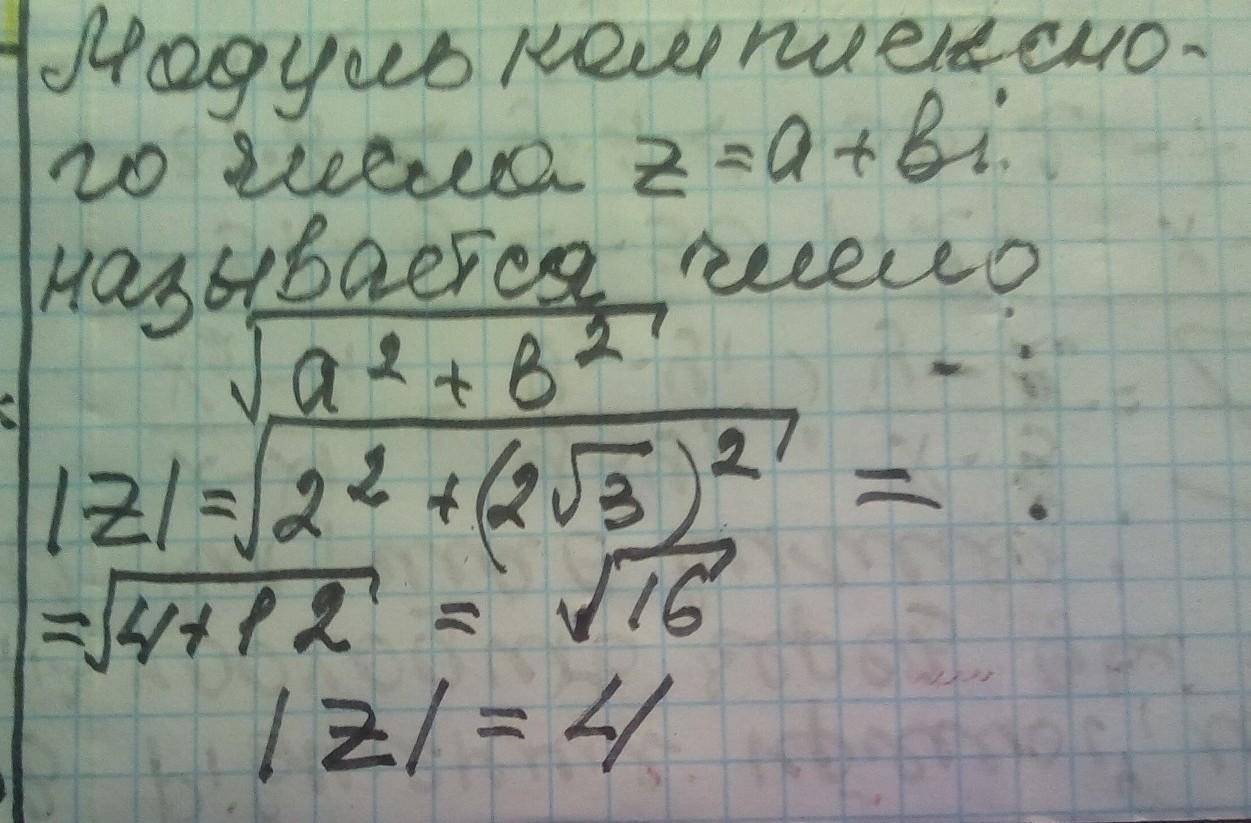 Модуль комплексно-
го числа z = a + bi
называется число
√(a² + b²)
|z| = √(2² + (2√3)²) =
= √(4 + 12) = √16
|z| = 4